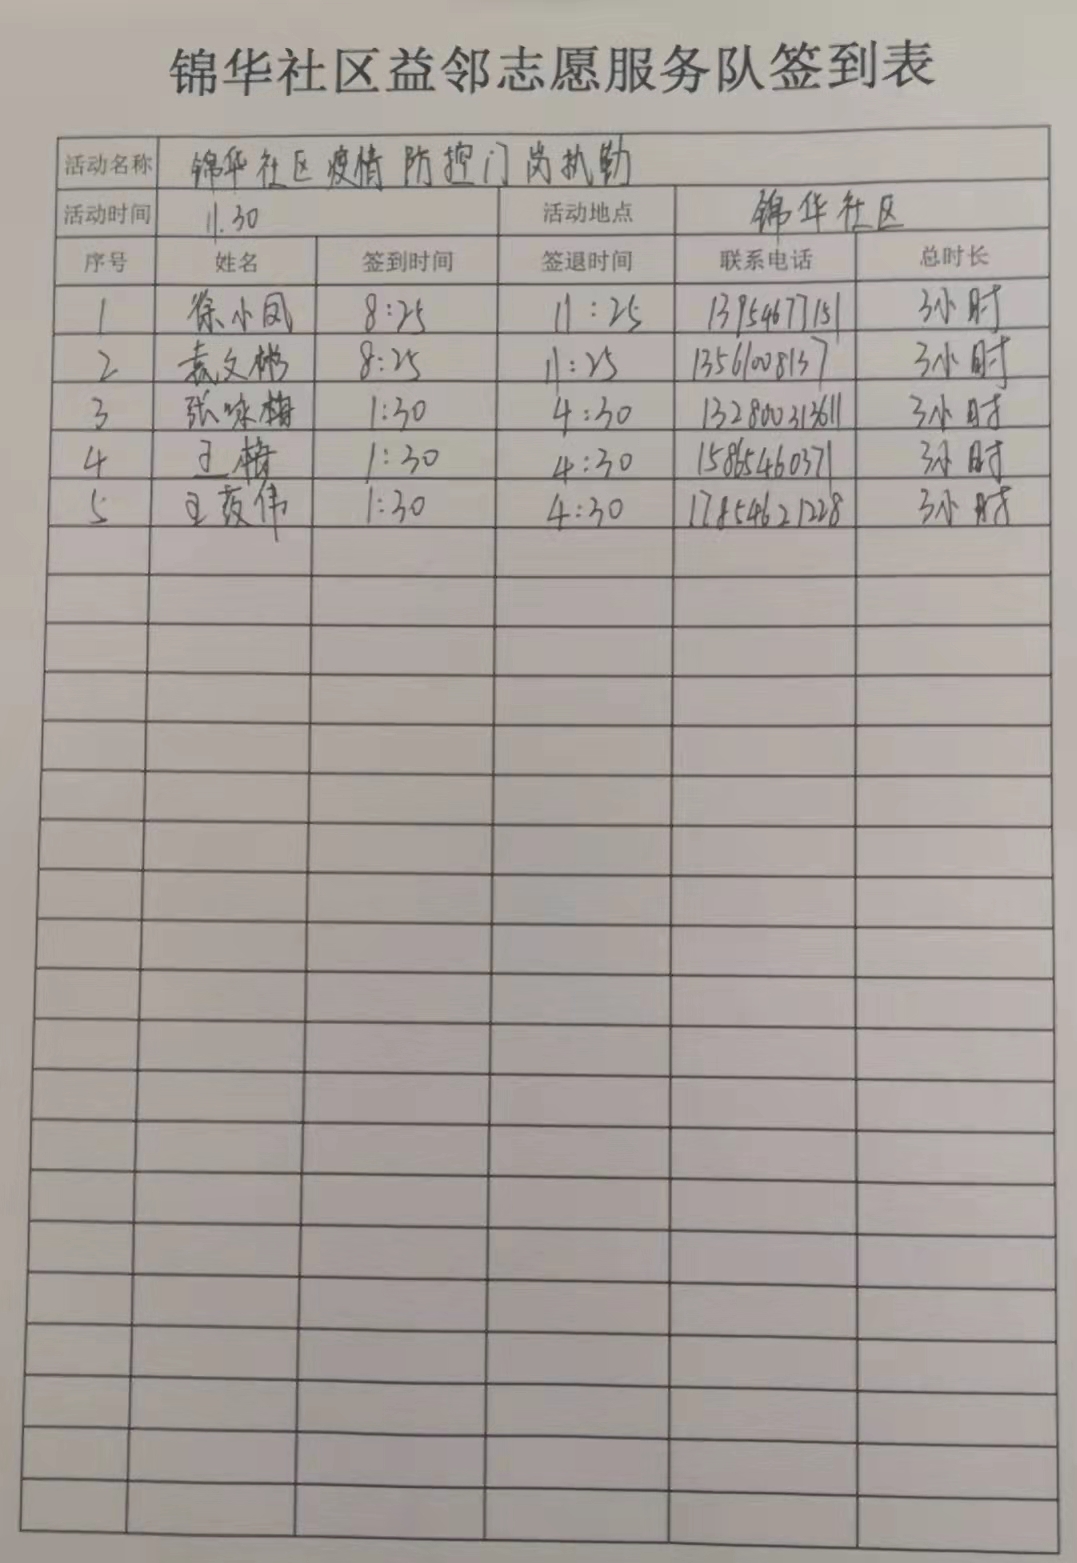 锦华社区益邻志愿服务队签到表
活动名称 锦华社区疫情防控门岗执勤
活动时间 11.30 活动地点 锦华社区
序号 姓名 签到时间 签退时间 联系电话 总时长
1 徐小凤 8:25 11:25 13954677151 3小时
2 袁文彬 8:25 11:25 13561008137 3小时
3 张咏梅 1:30 4:30 132800313611 3小时
4 王梅 1:30 4:30 15865460371 3小时
5 王 伟 1:30 4:30 17854621228 3小时